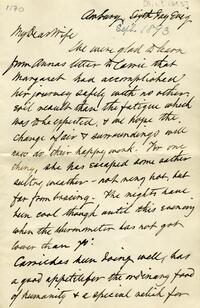 1170
Amherst Sixth Day Evg
Sept. 1893
My Dear Wife
We were glad to learn
from Anna's letter to Carrie that
Margaret had accomplished
her journey safely with no other
evil result than the fatigue which
was to be expected, & we hope the
change of air & surroundings will
now do their happy work. For one
thing, she has escaped some rather
sultry weather - not very hot, but
far from bracing. The nights have
been cool though until this evening
when the thermometer has not got
lower than 70°.
Carrie has been doing well, has
a good appetite for the ordinary food
of humanity & a special relish for